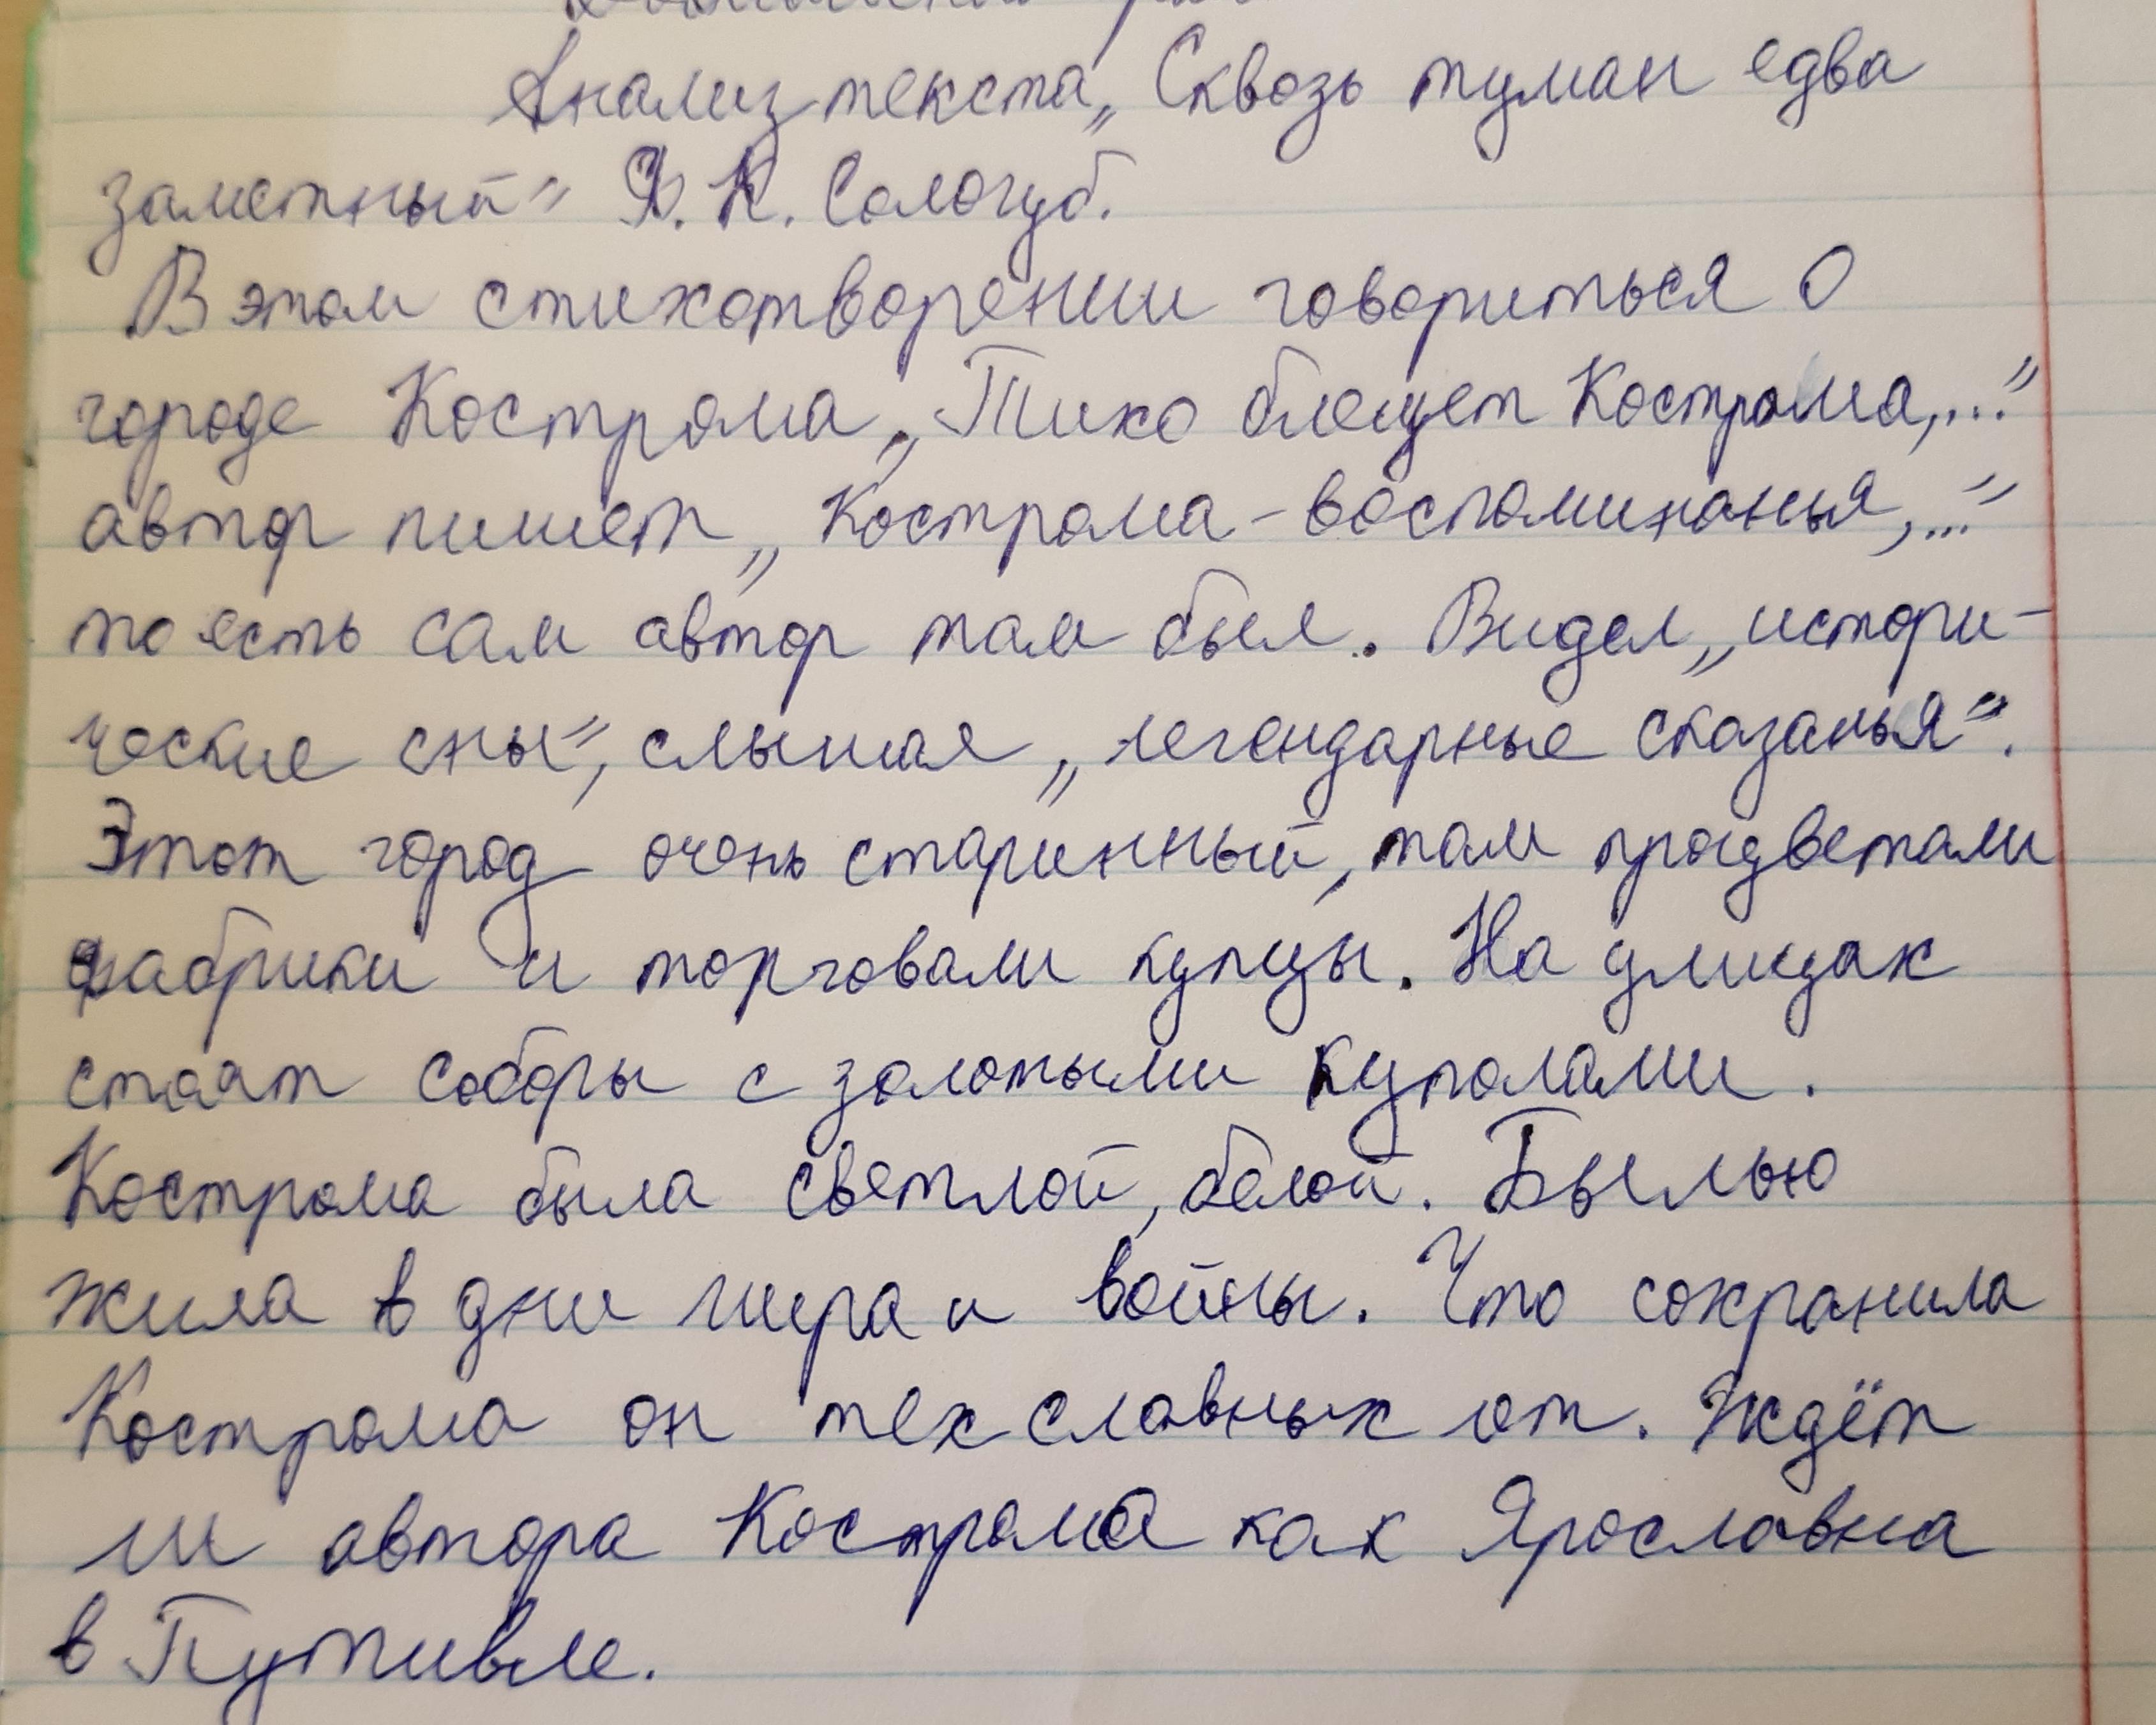 Анализ текста „Сквозь туман едва
заметный" Ф. К. Сологуб.
В этом стихотворении говориться о
городе Кострома „Тихо блещет Кострома,..."
автор пишет „Кострома - воспоминанья,..."
то есть сам автор там был. Видел „истори-
ческие сны", слышал „легендарные сказанья".
Этот город очень старинный, там процветали
фабрики и торговали купцы. На улицах
стоят соборы с золотыми куполами.
Кострома была светлой, белой. Былью
жила в дни мира и войны. Что сохранила
Кострома он тех славных лет. Ждёт
ли автора Кострома как Ярославна
в Путивле.